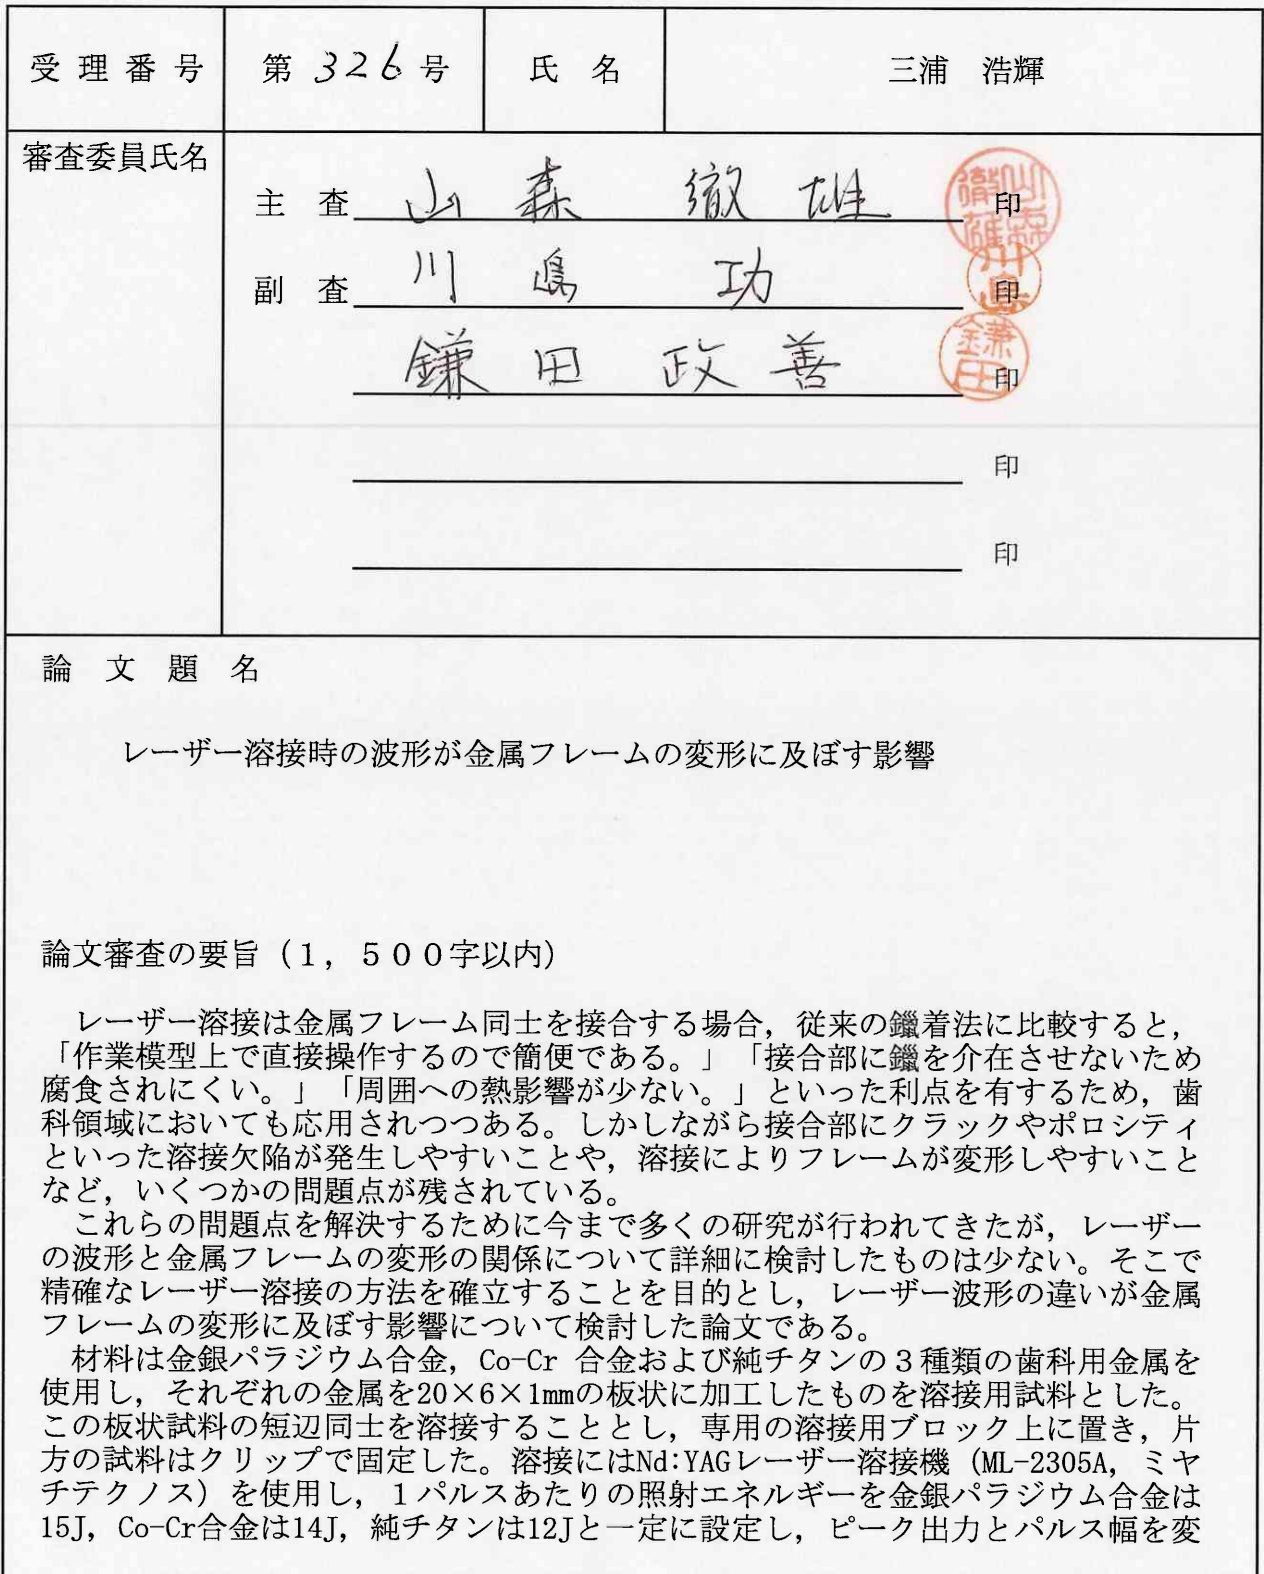 受理番号 第326号 氏名 三浦 浩輝
審査委員氏名
主査 山森 徹雄 印
副査 川島 功 印
鎌田 政善 印
印
印
論文題名
レーザー溶接時の波形が金属フレームの変形に及ぼす影響
論文審査の要旨（1，500字以内）
レーザー溶接は金属フレーム同士を接合する場合，従来の鑞着法に比較すると，
「作業模型上で直接操作するので簡便である。」「接合部に鑞を介在させないため
腐食されにくい。」「周囲への熱影響が少ない。」といった利点を有するため，歯
科領域においても応用されつつある。しかしながら接合部にクラックやポロシティ
といった溶接欠陥が発生しやすいことや，溶接によりフレームが変形しやすいこと
など，いくつかの問題点が残されている。
これらの問題点を解決するために今まで多くの研究が行われてきたが，レーザー
の波形と金属フレームの変形の関係について詳細に検討したものは少ない。そこで
精確なレーザー溶接の方法を確立することを目的とし，レーザー波形の違いが金属
フレームの変形に及ぼす影響について検討した論文である。
材料は金銀パラジウム合金，Co-Cr 合金および純チタンの3種類の歯科用金属を
使用し，それぞれの金属を20×6×1mmの板状に加工したものを溶接用試料とした。
この板状試料の短辺同士を溶接することとし，専用の溶接用ブロック上に置き，片
方の試料はクリップで固定した。溶接にはNd:YAGレーザー溶接機（ML-2305A，ミヤ
チテクノス）を使用し，1パルスあたりの照射エネルギーを金銀パラジウム合金は
15J，Co-Cr合金は14J，純チタンは12Jと一定に設定し，ピーク出力とパルス幅を変